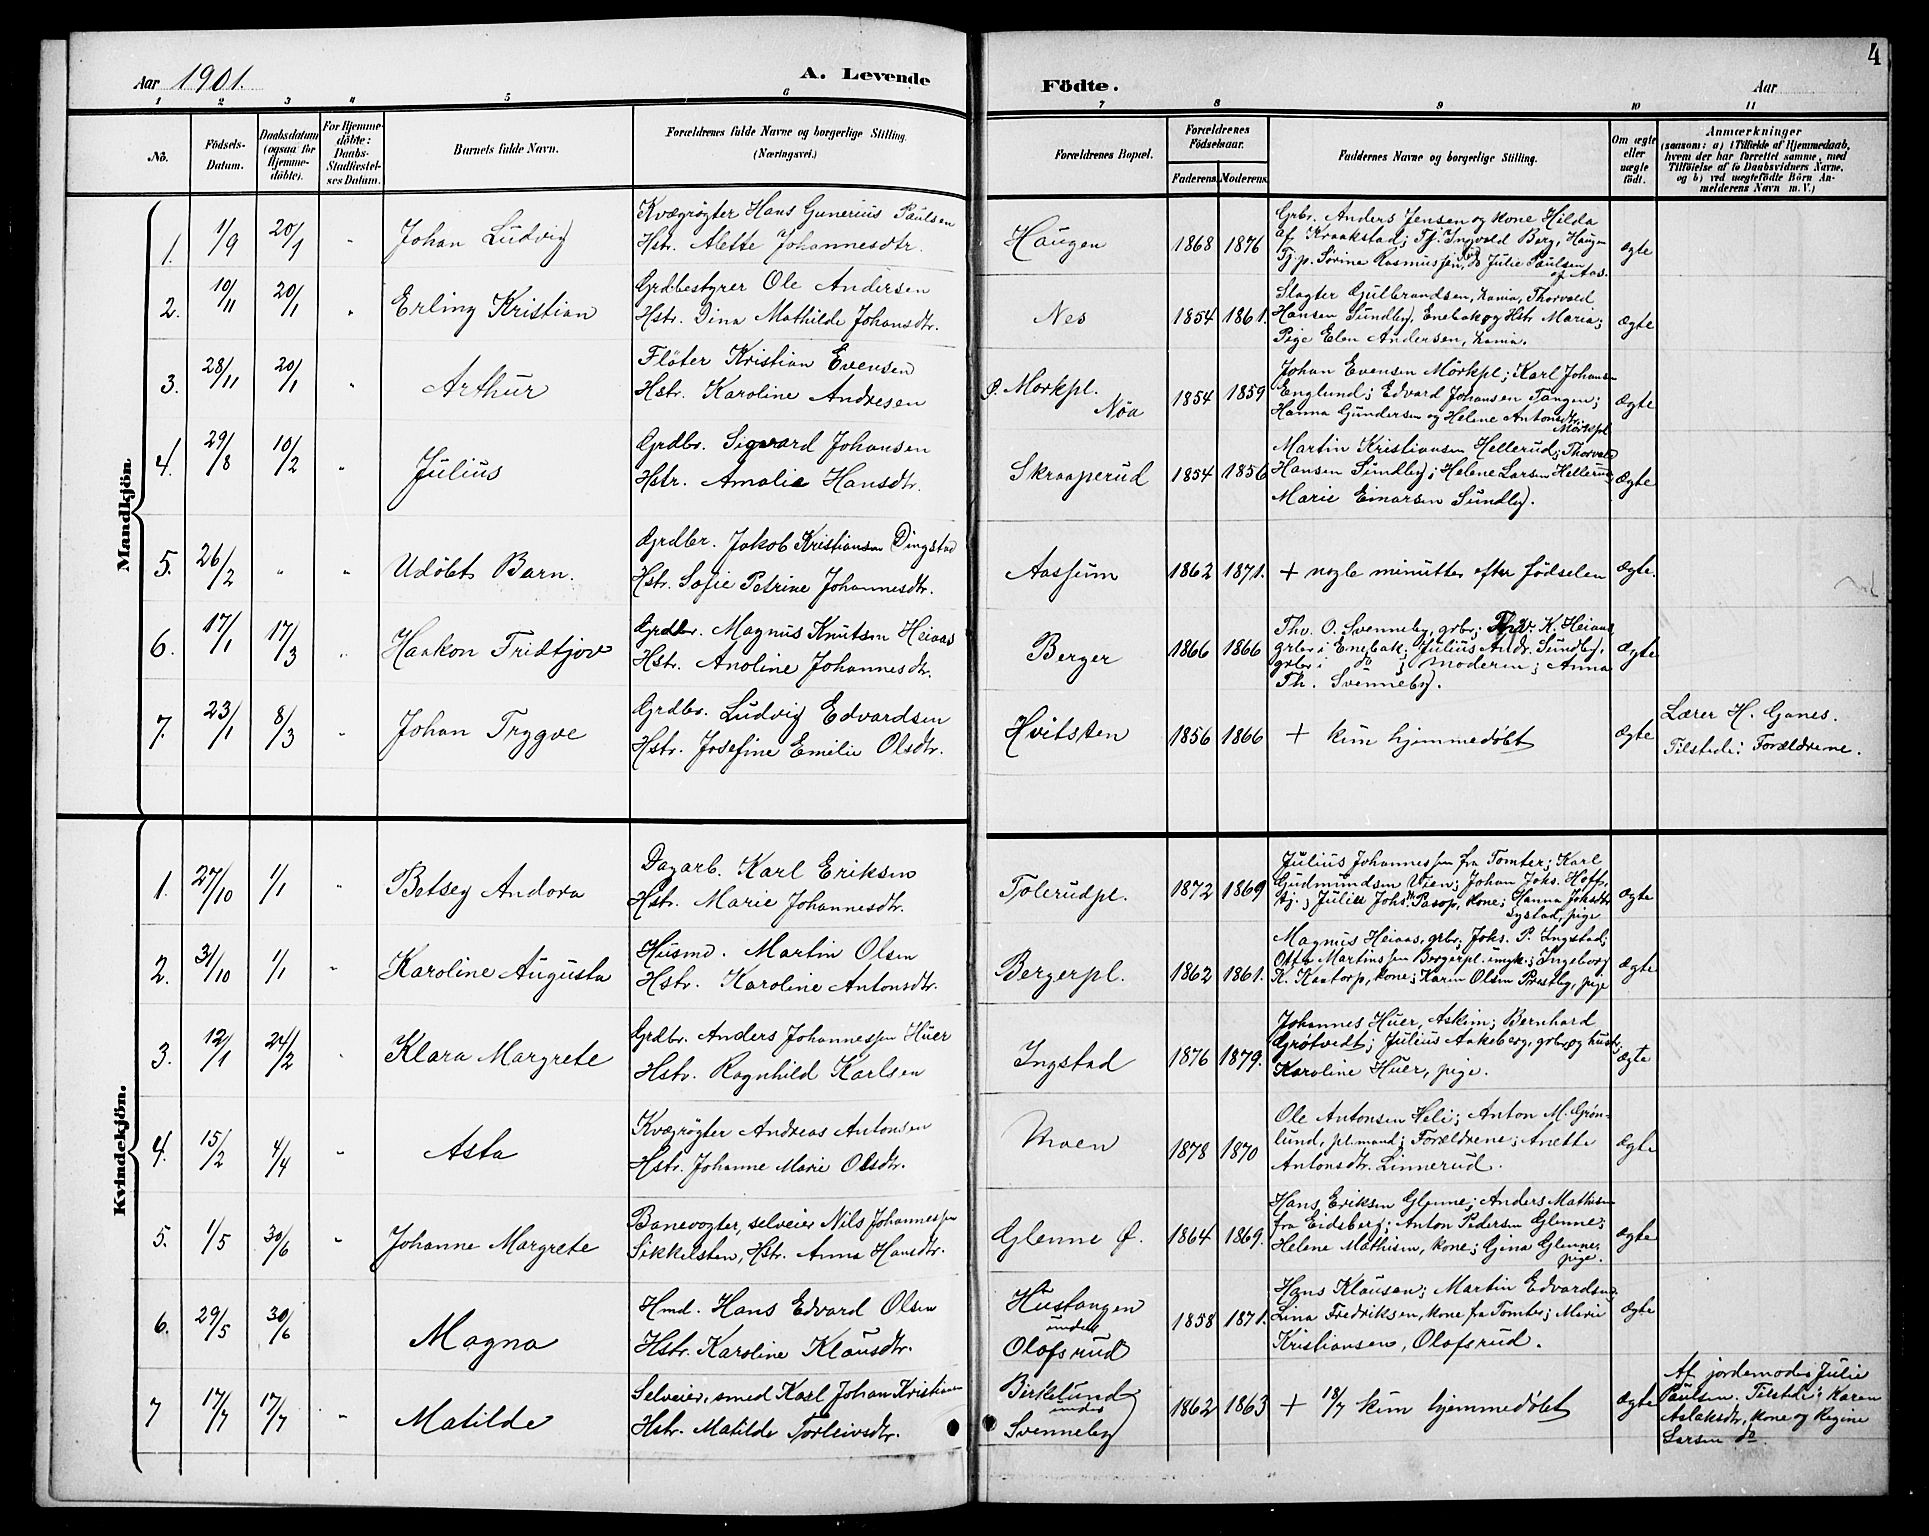 4
Aar 1901.
A. Levende
Födte.
Aar
1 2 3 4 5 6 7 8 9 10 11
No.
Födsels-
Datum.
Daabsdatum
(ogsaa for
Hjemme-
döbte).
For Hjemme-
döbte:
Daabs-
Stadfæstel-
ses Datum.
Barnets fulde Navn.
Forældrenes fulde Navne og borgerlige Stilling.
(Næringsvei.)
Forældrenes Bopæl.
Forældrenes
Födselsaar.
Faderens.
Moderens.
Faddernes Navne og borgerlige Stilling.
Om ægte
eller
uægte
födt.
Anmærkninger
(saasom: a) i Tilfælde af Hjemmedaab,
hvem der har forrettet samme, med
Tilföielse af to Daabsvidners Navne,
og b) ved uægtefödte Börn An-
melderens Navn m. V.)
Mandkjön
1. 1/9 20/1 " Johan Ludvig
Kvægrøgter Hans Gunerius Paulsen
Hstr. Alette Johannesdtr.
Haugen 1868 1876
Grbr. Anders Jensen og kone Hilda
af Kraakstad; Tj. Ingvald Berg, Haugen
Tj.p. Sørine Rasmussen, do Julie Paulsen
af Aas.
Ægte
2. 10/11 20/1 " Erling Kristian
Grdbestyrer Ole Andersen
Hstr. Dina Mathilde Johansdtr.
Nes 1854 1861.
Slagter Gulbrandsen, Kania, Thorvald
Hansen Sundby, Enebak og Hstr Maria;
Pige Elen Andersen, Kania.
Ægte
3. 28/11 20/1 " Arthur
Fløter Kristian Evensen
Hstr. Karoline Andresen
Ø. Mørkpl.
Nöa
1854 1859
Johan Evensen Mörkpl; Karl Johansen
Englund; Edvard Johansen Tangen;
Hanna Gundersen og Helene Antonsdtr.
Mörkpl
Ægte
4. 29/8 10/2 " Julius
Grdbr. Sigvard Johansen
Hstr. Amalie Hansdtr.
Skraaperud 1854 1856
Martin Kristiansen Hellerud; Thorvald
Hansen Sundby; Helene Larsen Hellerud
Marie Einarsen Sundby.
Ægte
5. 26/2 " " Udöbt Barn.
Grdbr. Jakob Kristiansen Dingstad
Hstr. Sofie Petrine Johannesdtr.
Aassum 1862 1871. + nogle minutter efter födselen Ægte.
6. 17/1 17/3 " Haakon Fridtjov
Grdbr. Magnus Knutsen Heiaas
Hstr. Anoline Johannesdtr.
Berger 1866 1866
Thv. O. Svenneby, grbr; Thv. K. Heiaas
grbr i Enebak; Julius Andr. Sundby,
grbr i do ; moderen; Anna
Th. Svenneby.
Ægte
7. 23/1 8/3 " Johan Trygve
Grdbr. Ludvig Edvardsen
Hstr. Josefine Emilie Olsdtr.
Hvitsten 1856 1866 + kun hjemmedöbt Ægte
Lærer H. Ganes.
Tilstede: Forældrene.
Kvindekjön.
1. 27/10 1/1 " Betsey Andora
Dagarb. Karl Eriksen
Hstr. Marie Johannesdtr.
Tolerudpl. 1872 1869
Julius Johannessen fra Tomter; Karl
Gudmundsen Vien; Johan Johs. Hoff,
tj.; Julie Johsn Pasop, kone; Hanna Johsdtr
Systad, pige
Ægte
2. 31/10 1/1 " Karoline Augusta
Husmd. Martin Olsen
Hstr. Karoline Antonsdtr.
Bergerpl. 1862 1861.
Magnus Heiaas, grbr; Johs. P. Ingstad;
Otto Martinssen Bergerpl. ungk; Ingeborg
K. Kaatorp, kone; Karen Olsen Prestby, pige
Ægte
3. 12/1 24/2 " Klara Margrete
Grdbr. Anders Johannessen Huer
Hstr. Ragnhild Karlsen
Ingstad 1876 1879.
Johannes Huer, Askim; Bernhard
Grötvedt; Julius Aakeberg, grbr, og hustr;
Karoline Huer, pige.
Ægte
4. 15/2 4/4 " Asta
Kvægrögter Andreas Antonsen
Hstr. Johanne Marie Olsdtr.
Moen 1878 1870
Ole Antonsen Heli; Anton M. Grön-
lund, pl.mand; Forældrene; Anette
Antonsdtr. Linnerud.
Ægte
5. 1/5 30/6 " Johanne Margrete
Banevogter, selveier Nils Johannessen
Sikkelsten, Hstr. Anna Hansdtr.
Glenne Ø. 1864 1869.
Hans Eriksen Glenne; Anders Mathisen
fra Eidsberg; Anton Pedersen Glenne;
Helene Mathisen, kone; Gina Glenne,
pige.
Ægte
6. 29/5 30/6 Magna
Hmd. Hans Edvard Olsen
Hstr. Karoline Klausdtr.
Hustangen
under
Olafsrud
1858 1871.
Hans Klausen; Martin Edvardsen;
Lina Fredriksen, kone fra Tomter; Marie
Kristiansen, Olafsrud.
Ægte
7 17/7 17/7 " Matilde
Selveier, smed Karl Johan Kristiansen
Hstr. Matilde Torleivsdtr.
Birkelund
under
Svenneby
1862 1863 + 18/7 kun hjemmedöbt Ægte
Af jordemoder Julie
Paulsen. Tilstede: Karen
Aslaksdtr, kone og Regine
Larsen do.